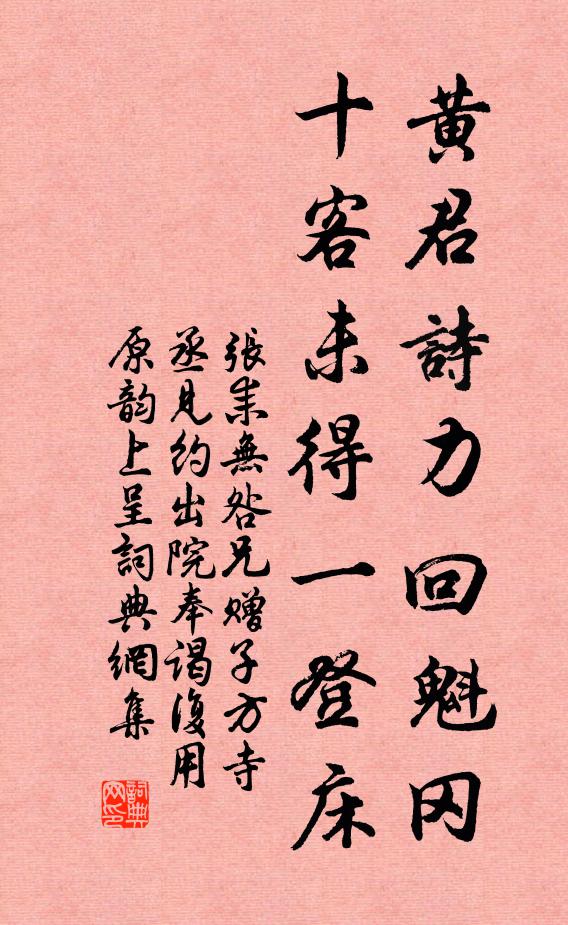 黄君詩力回魁冈
十客未得一登床
張耒無咎兄赠子方寺
丞見约出院奉谒復用
原韵上呈詞典網集
詞典网印